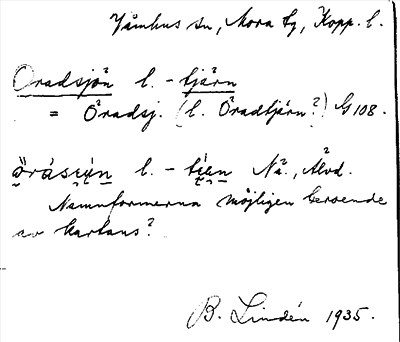 Våmhus sn, Mora tg, Kopp. l.
Oradsjön l. -tjärn
= Öradsj. (l. Öradtjärn?) G 108.
l. - Nå., Älvd.
Namnformerna möjligen beroende
av kartans?
B. Lindén 1935.